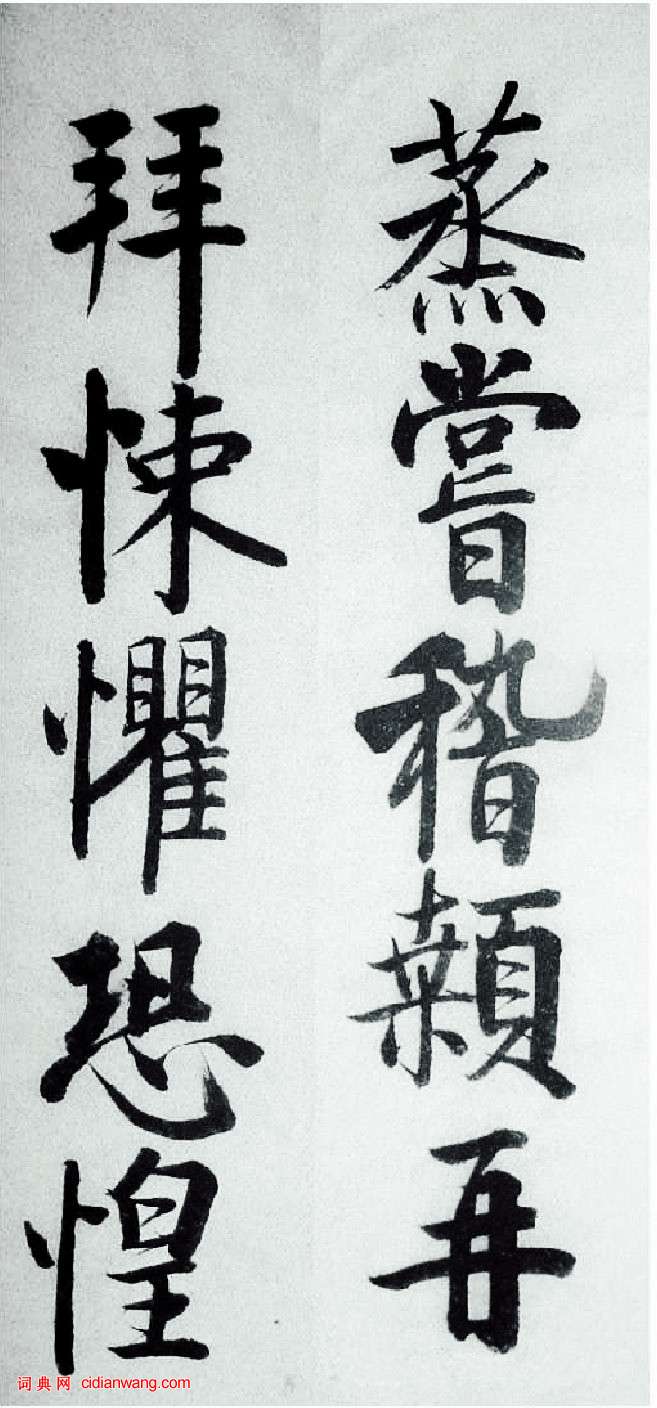 蒸嘗稽顙再
拜悚懼恐惶
词典网 cidianwang.com